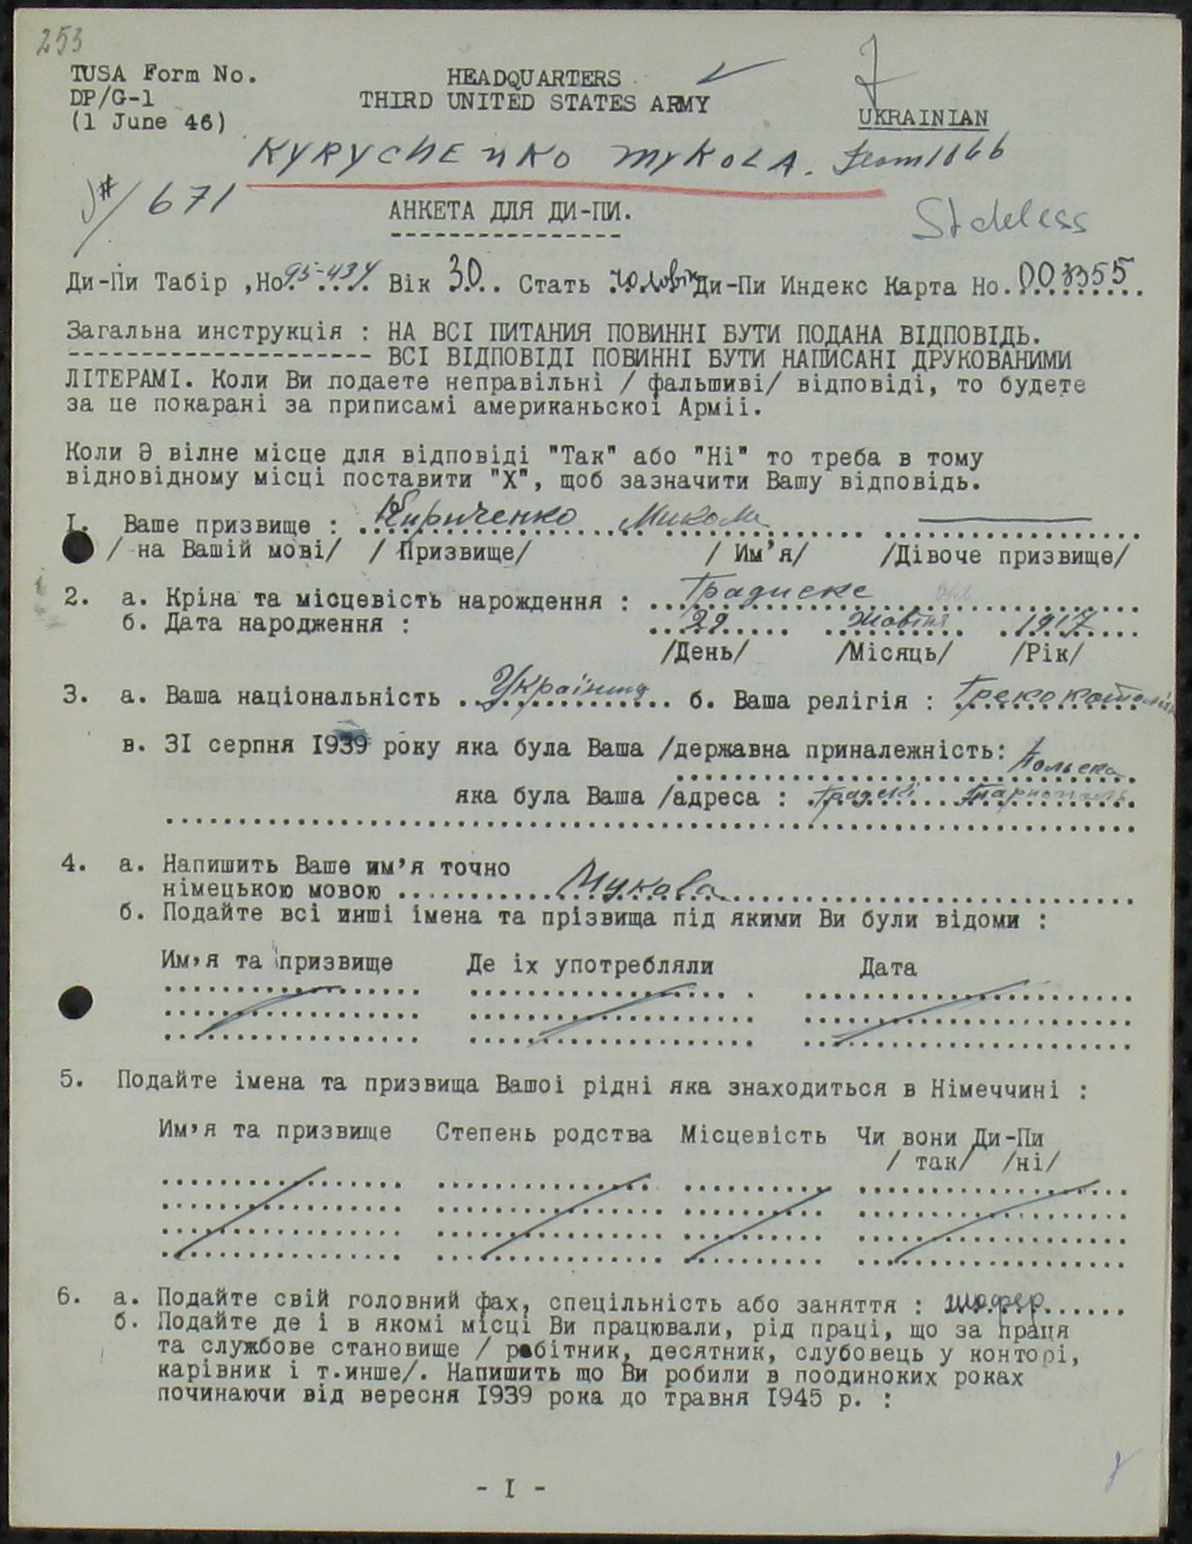 253
TUSA Form No.
DP/G-1
(1 June 46)
HEADQUARTERS
THIRD UNITED STATES ARMY
UKRAINIAN
KYRYCHENKO MYKOLA. 1066
# 671
Stateless
АНКЕТА ДЛЯ ДИ-ПИ.
Ди-Пи Табір ,Но. 95-434 Вік 30 Стать чоловік Ди-Пи Индекс Карта Но. 003355
Загальна инструкція : НА ВСІ ПИТАНИЯ ПОВИННІ БУТИ ПОДАНА ВІДПОВІДЬ.
ВСІ ВІДПОВІДІ ПОВИННІ БУТИ НАПИСАНІ ДРУКОВАНИМИ
ЛІТЕРАМІ. Коли Ви подаете неправільні / фальшиві/ відповіді, то будете
за це покарані за приписамі американьскої Арміі.
Коли Э вілне місце для відповіді "Так" або "Ні" то треба в тому
відновідному місці поставити "Х", щоб зазначити Вашу відповідь.
I. Ваше призвище : Кириченко Микола
/ на Вашій мові/ / Призвище/ / Им'я/ /Дівоче призвище/
2. а. Кріна та місцевість нарождення : Градиске
б. Дата народження : 29 жовтня 1917
/День/ /Місяць/ /Рік/
3. а. Ваша національність Українец б. Ваша религія : Грекокатолік
в. 3І серпня І939 року яка була Ваша /державна приналежність: Польска
яка була Ваша /адреса : Тарнополь
4. а. Напишить Ваше им'я точно
німецькою мовою Mykola
б. Подайте всі инші імена та прізвища під якими Ви були відоми :
Им'я та призвище Де їх употребляли Дата
5. Подайте імена та призвища Вашоі рідні яка знаходиться в Німеччині :
Им'я та призвище Степень родства Місцевість Чи вони Ди-Пи
/ так/ /ні/
6. а. Подайте свій головний фах, спецільність або заняття : шофер
б. Подайте де і в якомі місці Ви працювали, рід праці, що за праця
та службове становище / робітник, десятник, слубовець у конторі,
карівник і т.инше/. Напишить що Ви робили в поодиноких роках
починаючи від вересня І939 рока до травня І945 р. :
- I -